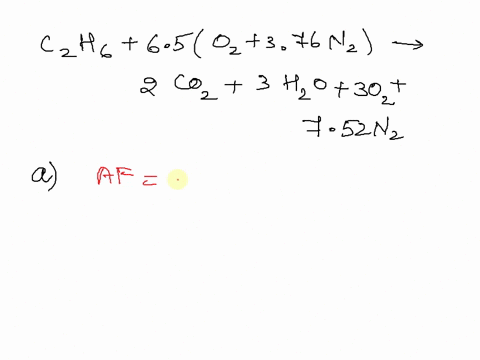 C₂H₆ + 6.5 ( O₂ + 3.76 N₂ ) →
2 CO₂ + 3 H₂O + 3O₂ +
7.52 N₂
a) AF =